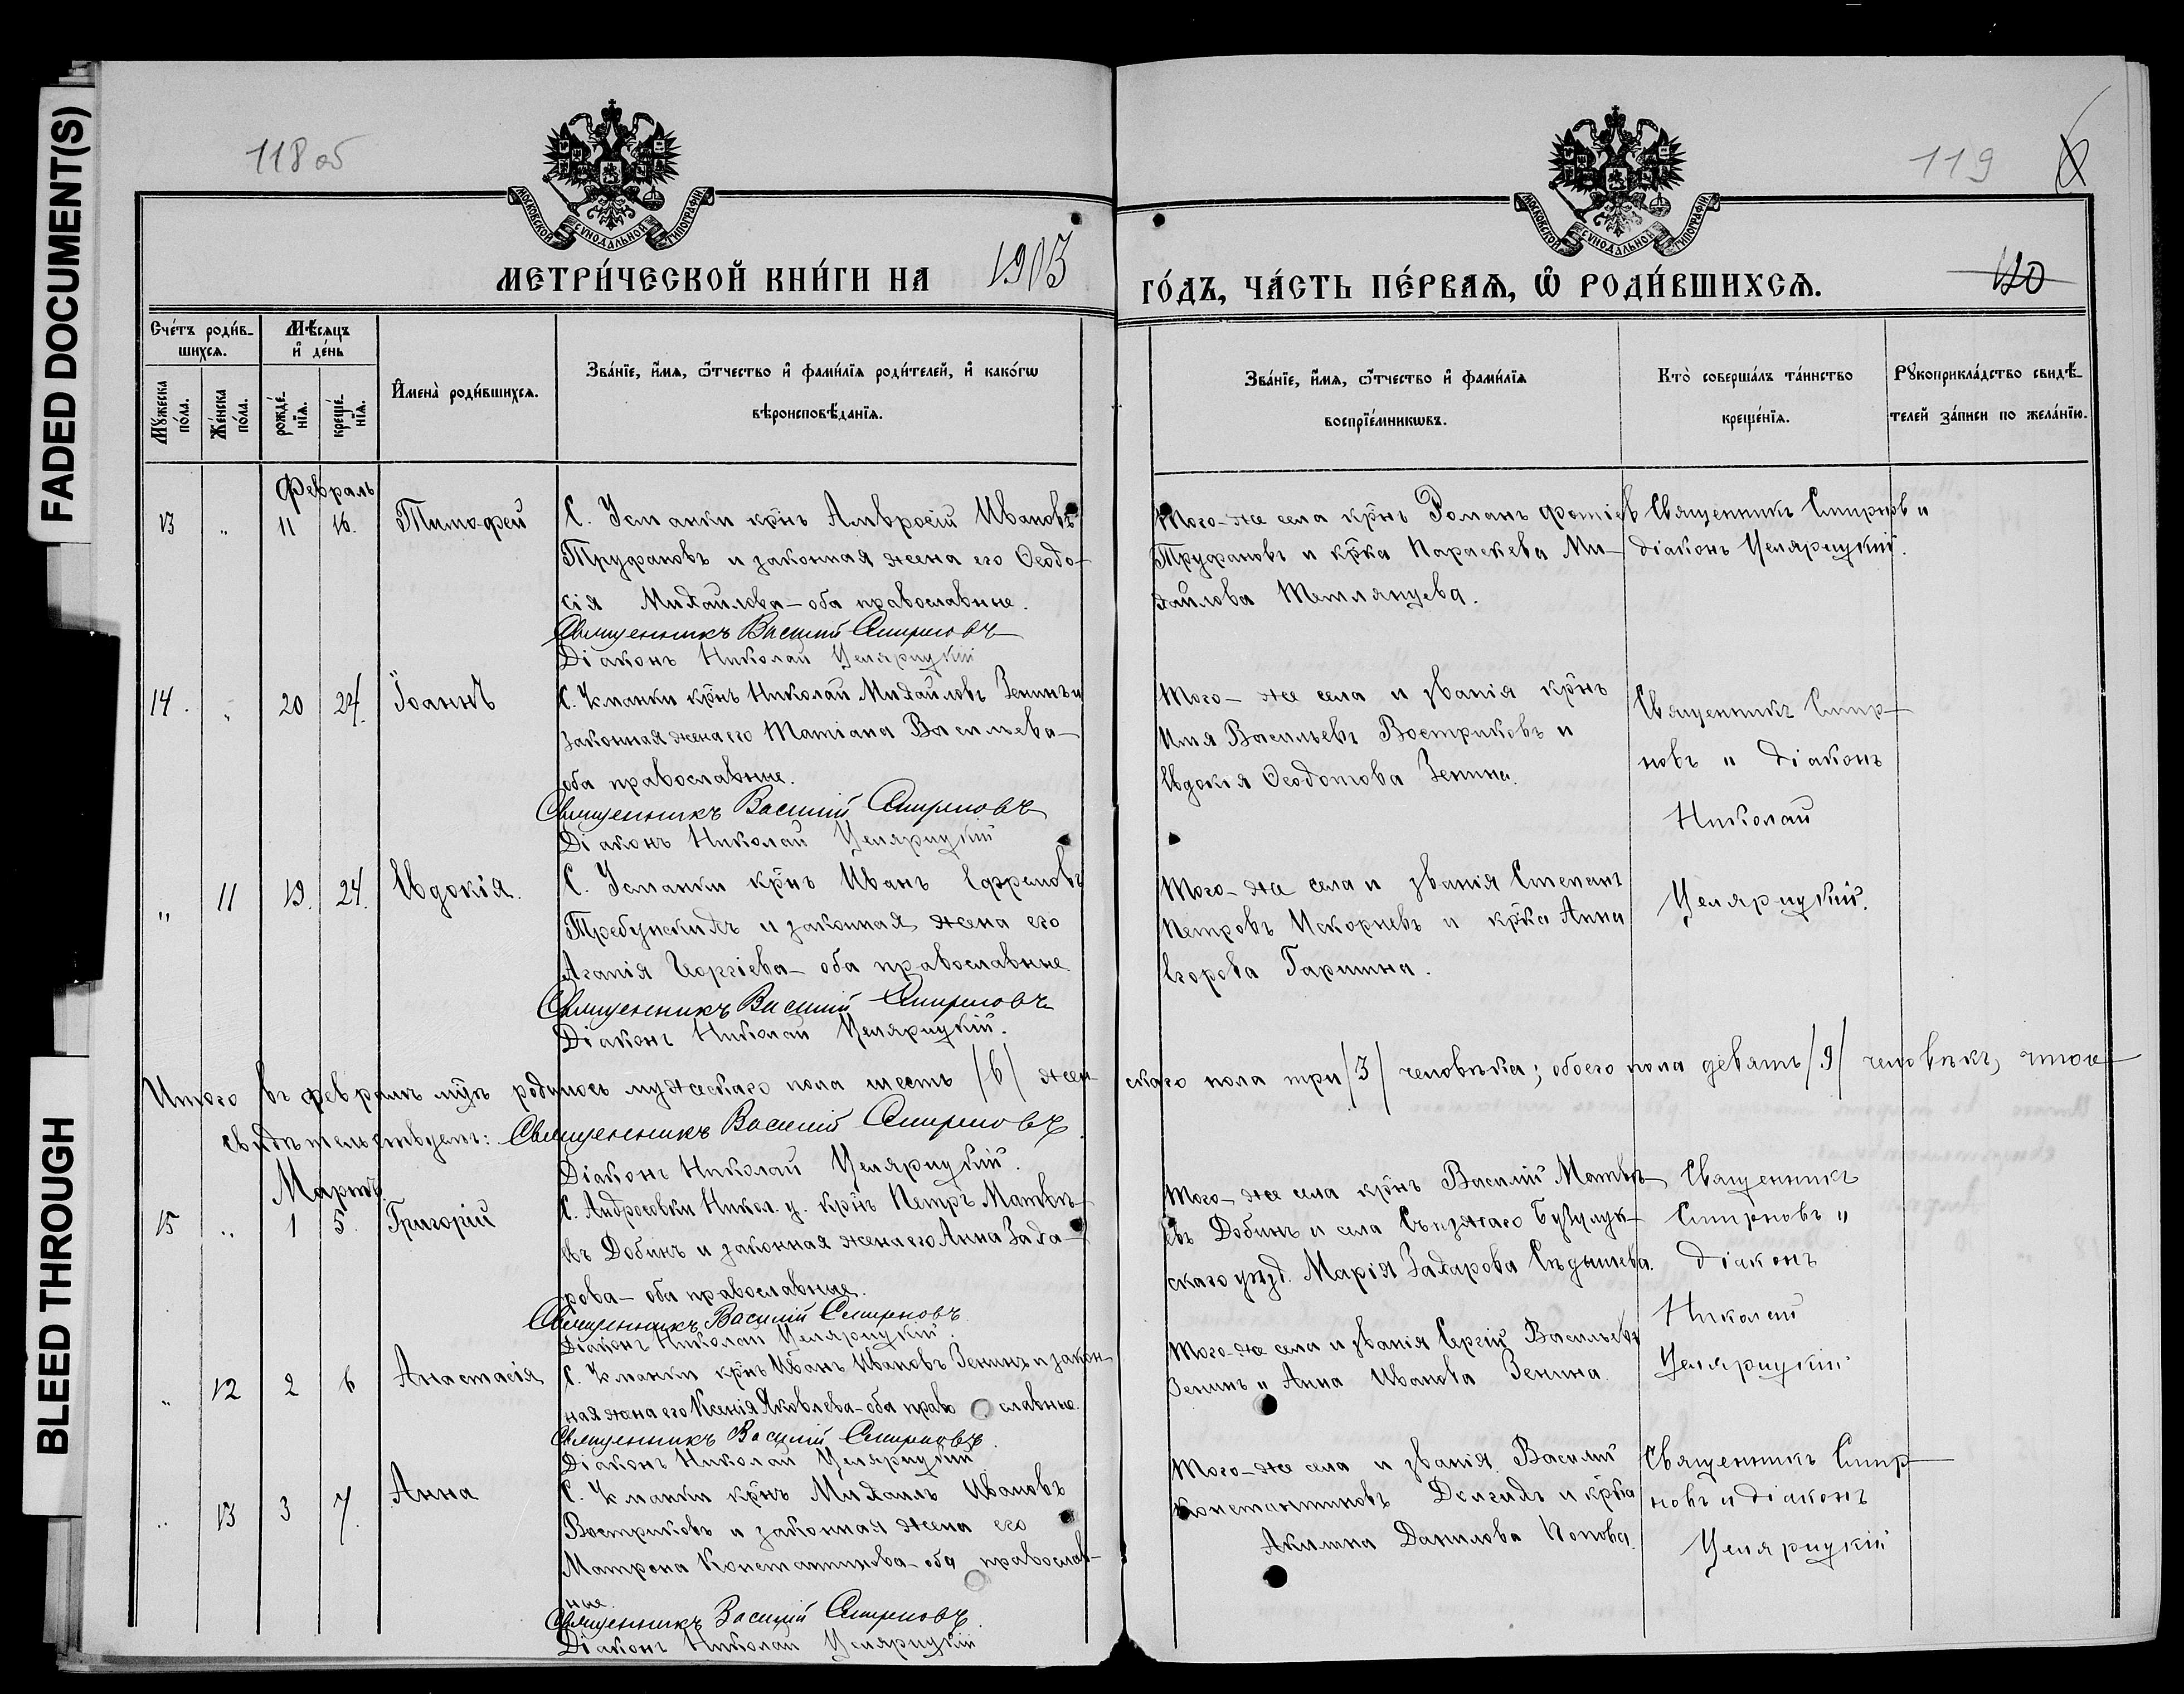 FADED DOCUMENT(S)
BLEED THROUGH
118 об
119
120
МОСКОВСКОЙ СѴНОДАЛЬНОЙ ТИПОГРАФІИ.
МОСКОВСКОЙ СѴНОДАЛЬНОЙ ТИПОГРАФІИ.
МЕТРИ́ЧЕСКОЙ КНИ́ГИ НА 1903 ГО́ДЪ, ЧА́СТЬ ПЕ́РВАѦ, Ѽ РОДИ́ВШИХСѦ.
Счéтъ роди́в-
шихсѧ.
Мѣ́сѧцъ
и҆ дéнь
Мꙋ́жеска
по́ла.
Жéнска
по́ла.
рождé-
нїѧ.
крещé-
нїѧ.
И҆мена̀ роди́вшихсѧ.
Зва́нїе, и҆́мѧ, ѻ҆́тчество и҆ фами́лїѧ роди́телей, и҆ како́гѡ
вѣроисповѣ́данїѧ.
Зва́нїе, и҆́мѧ, ѻ҆́тчество и҆ фами́лїѧ
воспрїе́мникѡвъ.
Кто̀ соверша́лъ та́инство
крещéнїѧ.
Рꙋкоприкла́дство свидѣ́-
телей за́писи по жела́нїю.
Февраль
13 " 11 16. Тимофей
С. Усманки кр̃нъ Амвросій Ивановъ
Труфановъ и законная жена его Ѳеодо-
сія Михаилова – оба православные.
Священникъ Василій Смирновъ
Діаконъ Николай Целярицкій
Того-же села кр̃нъ Романъ Фотіев
Труфановъ и кр̃ка Параскева Ми-
хаилова
Священникъ Смирнов и
діаконъ Целярицкій.
14. " 20 24. Іоаннъ
С. Усманки кр̃нъ Николай Михайловъ Зенинъ и
законная жена его Татіана Васильева –
оба православные.
Священникъ Василій Смирновъ
Діаконъ Николай Целярицкій
Того-же села и званія кр̃нъ
Илія Васильевъ Востриковъ и
Евдокія Ѳеодотова Зенина.
Священникъ Смир-
новъ и діаконъ
Николай
Целярицкій.
" 11 19. 24. Евдокія.
С. Усманки кр̃нъ Иванъ Ефремовъ
Требунскихъ и законная жена его
Агапія Георгіева – оба православные
Священникъ Василій Смирновъ
Діаконъ Николай Целярицкій.
Того-же села и званія Степанъ
Петровъ Искорневъ и кр̃ка Анна
Егорова Гаршина.
Итого въ февралѣ мц̃ѣ родилось мужескаго пола шесть /6/ жен-скаго пола три /3/ человѣка; обоего пола девять /9/ человѣкъ, что и
свидѣтельствуемъ: Священникъ Василій Смирновъ.
Діаконъ Николай Целярицкій.
Мартъ.
15 " 1 5. Григорій
С. Андросовки Никол. у. кр̃нъ Петръ Матвѣ-
евъ Добинъ и законная жена его Анна Заха-
рова – оба православные.
Священникъ Василій Смирновъ.
Діаконъ Николай Целярицкій.
Того-же села кр̃нъ Василій Матвѣ-
евъ Добинъ и села Съѣзжаго Бузулук-
скаго уѣзд. Марія Захарова Сѣдышева.
Священникъ
Смирновъ и
діаконъ
Николай
Целярицкій
" 12 2 6 Анастасія
С. Усманки кр̃нъ Иванъ Ивановъ Зенинъ и закон-
ная жена его Ксенія Яковлева – оба право славные.
Священникъ Василій Смирновъ.
Діаконъ Николай Целярицкій
Того-же села и званія Сергій Васильевъ
Зенинъ и Анна Иванова Зенина.
" 13 3 7. Анна
С. Усманки кр̃нъ Михаилъ Ивановъ
Востриковъ и законная жена его
Матрона Константинова – оба православ-
ные.
Священникъ Василій Смирновъ.
Діаконъ Николай Целярицкій
Того-же села и званія Василій
Константиновъ Долгихъ и кр̃ка
Акилина Данилова Попова.
Священникъ Смир-
новъ и діаконъ
Целярицкій